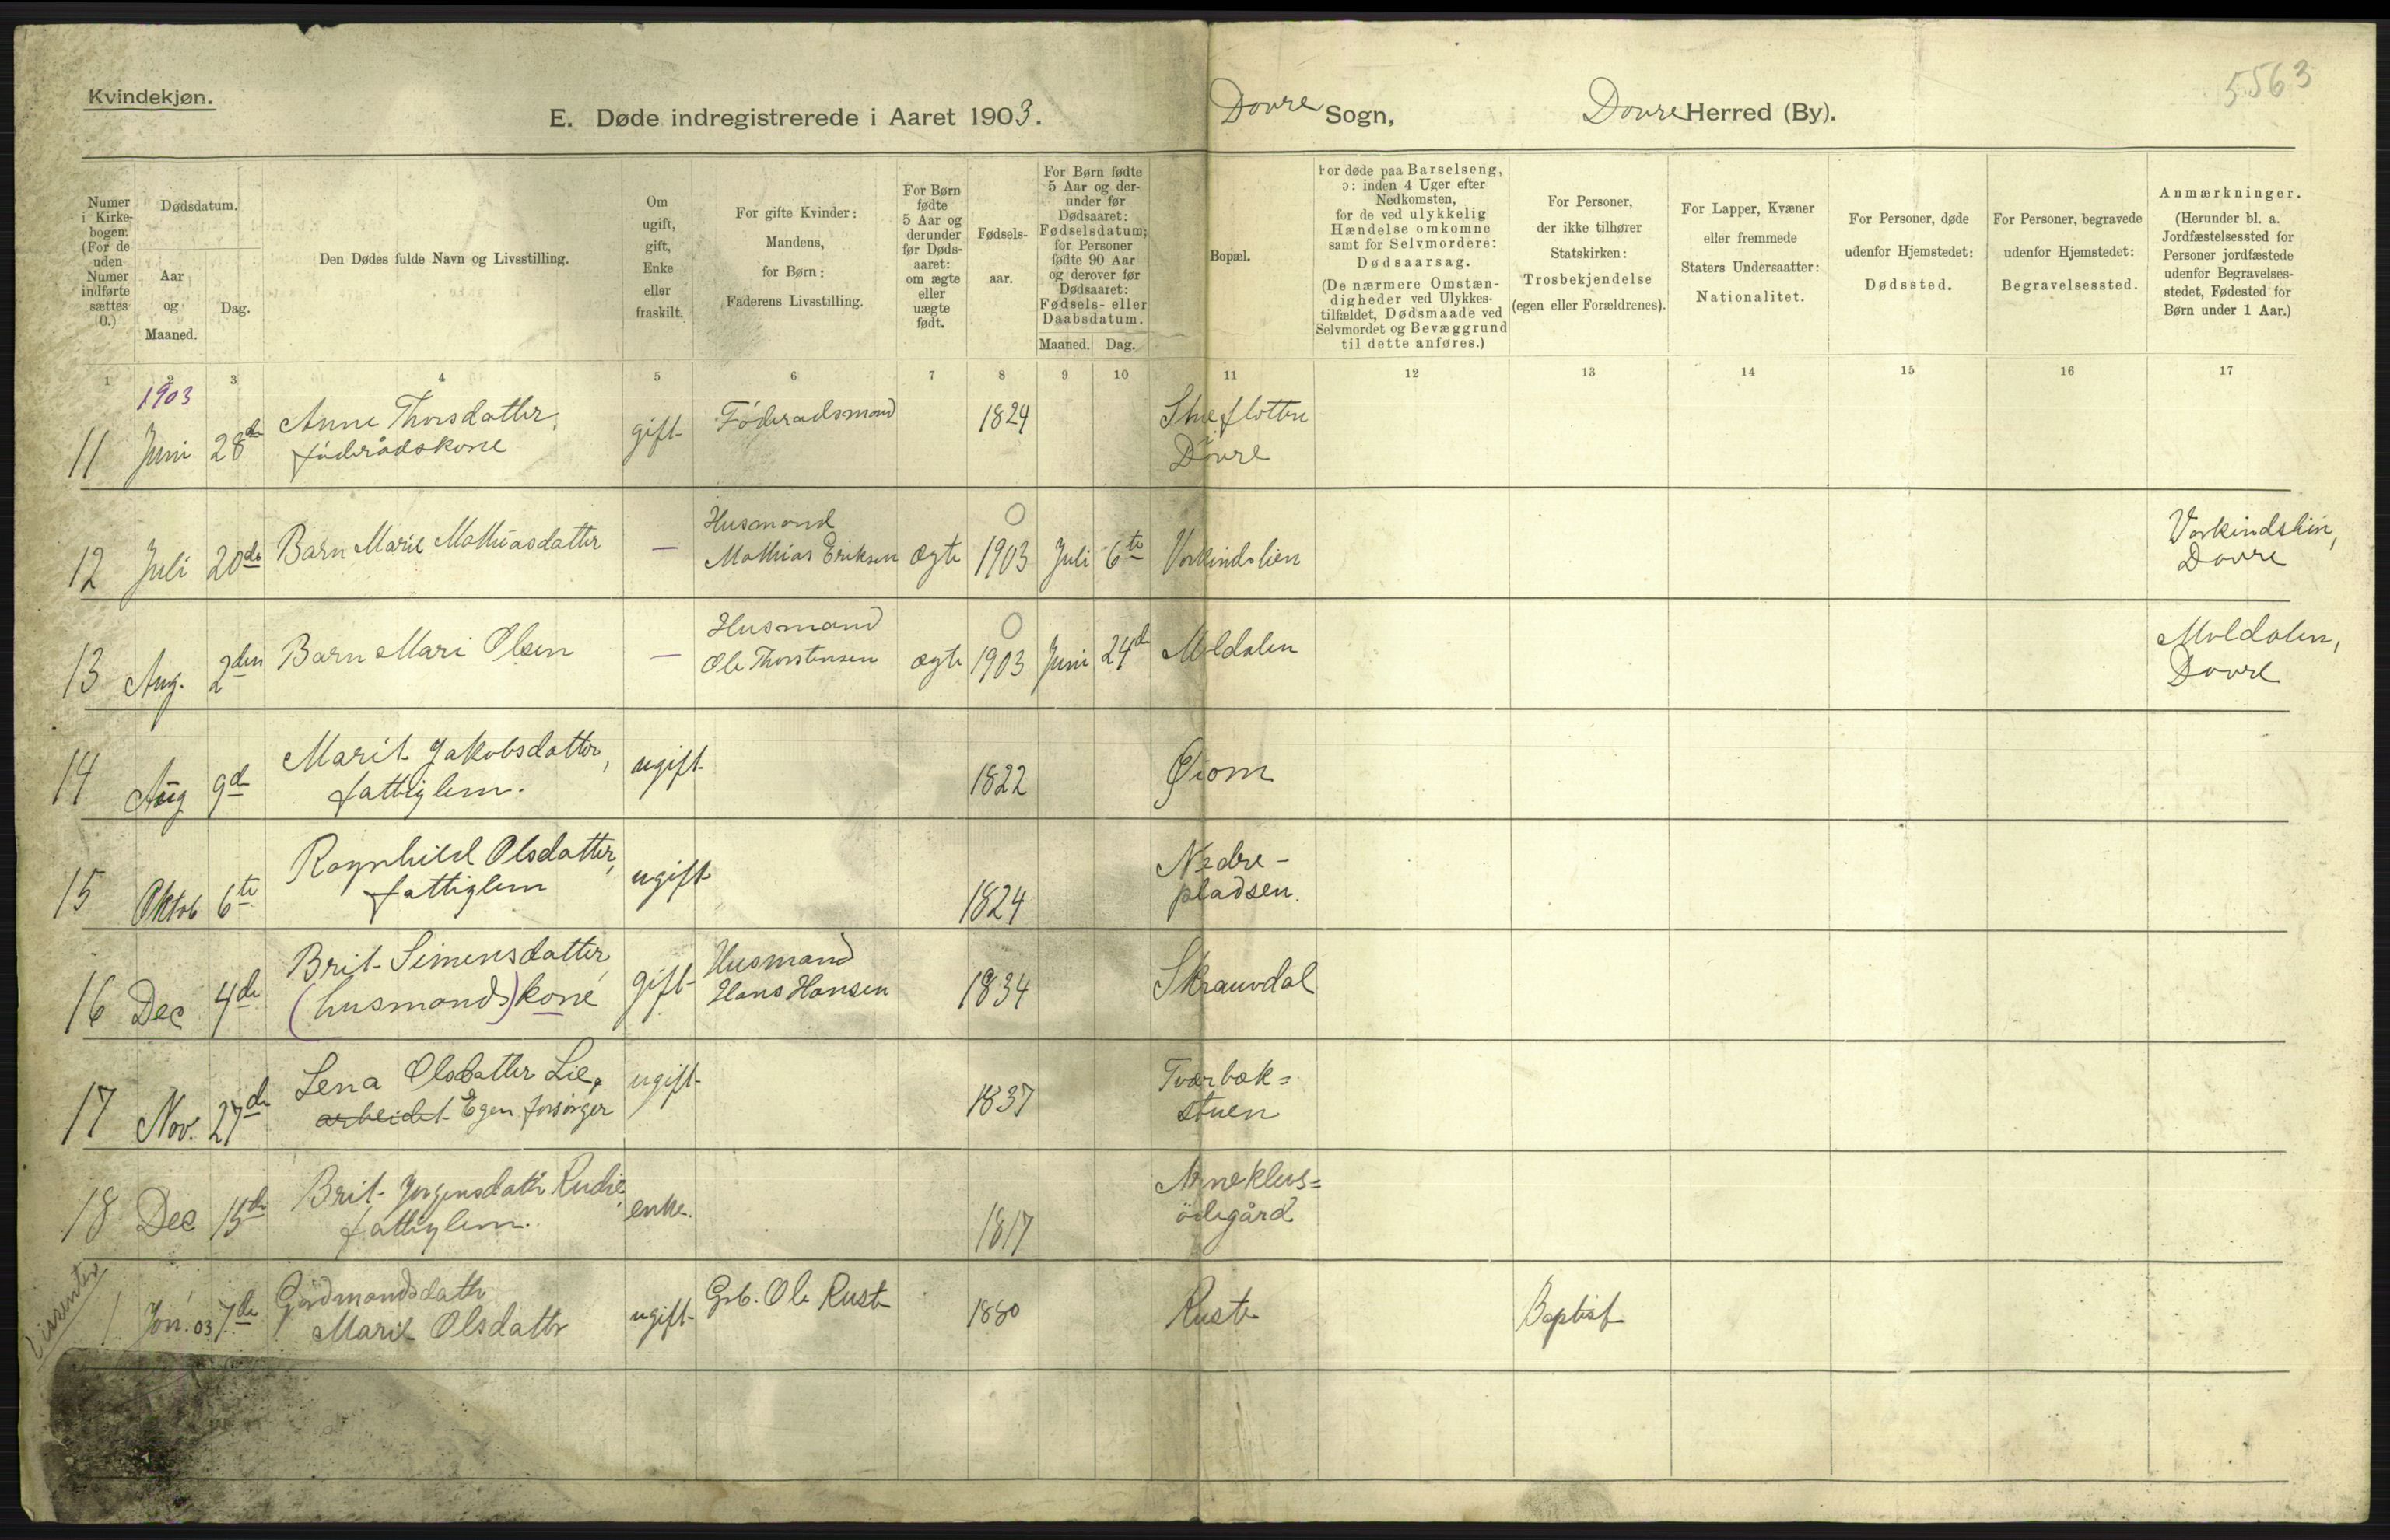 5563
Kvindekjøn.
E. Døde indregistrerede i Aaret 1903.
Dovre Sogn,
Dovre Herred (By).
Numer
i Kirke-
bogen.
(For de
uden
Numer
indførte
sættes
0.)
Dødsdatum.
Aar
og
Maaned.
Dag.
Den Dødes fulde Navn og Livsstilling.
Om
ugift,
gift,
Enke
eller
fraskilt.
For gifte Kvinder:
Mandens,
for Børn:
Faderens Livsstilling.
For Børn
fødte
5 Aar og
derunder
før Døds-
aaret:
om ægte
eller
uægte
født.
Fødsels-
aar.
For Børn fødte
5 Aar og der-
under før
Dødsaaret:
Fødselsdatum;
for Personer
fødte 90 Aar
og derover før
Dødsaaret:
Fødsels- eller
Daabsdatum.
Maaned. Dag.
Bopæl.
For døde paa Barselseng,
ɔ: inden 4 Uger efter
Nedkomsten,
for de ved ulykkelig
Hændelse omkomne
samt for Selvmordere:
Dødsaarsag.
(De nærmere Omstæn-
digheder ved Ulykkes-
tilfældet, Dødsmaade ved
Selvmordet og Bevæggrund
til dette anføres.)
For Personer,
der ikke tilhører
Statskirken:
Trosbekjendelse
(egen eller Forældrenes).
For Lapper, Kvæner
eller fremmede
Staters Undersaatter:
Nationalitet.
For Personer, døde
udenfor Hjemstedet:
Dødssted.
For Personer, begravede
udenfor Hjemstedet:
Begravelsessted.
Anmærkninger.
(Herunder bl. a.
Jordfæstelsessted for
Personer jordfæstede
udenfor Begravelses-
stedet, Fødested for
Børn under 1 Aar.)
1 2 3 4 5 6 7 8 9 10 11 12 13 14 15 16 17
1903
11 Juni 28de Anne Thorsdatter, gift Föderadsmand 1824
föderådskone
i
Dovre
12 Juli 20de Barn Marie Mathiasdatter — Husmand
Mathias Eriksen ægte 1903 Juli 6te Vorkindslien
Vorkindslien,
Dovre
13 Aug. 2den Barn Mari Olsen — Husmand
Ole Thorstensen ægte 1903 Juni 24de Moldalen
Moldalen,
Dovre
14 Aug 9de Marit Jakobsdatter, ugift 1822 Øiom
fattiglem.
15 Oktob 6te Ragnhild Olsdatter, ugift 1824 Nedre-
fattiglem pladsen.
16 Dec 4de Brit Simensdatter, gift Husmand 1834 Skrauvdal
(husmands)kone Hans Hansen
17 Nov. 27de Lena Olsdatter Lie, ugift 1837 Tværbæk=
arbeidet Egen forsørger stuen
18 Dec 15de Brit Jørgensdatr Rudie, enke. 1817 Arneklus=
fattiglem. ödegård
Dissenter
1 Jan. 03 7de Gårdmandsdatr ugift Grb. Ole Ruste 1880 Ruste Baptist
Marit Olsdattr